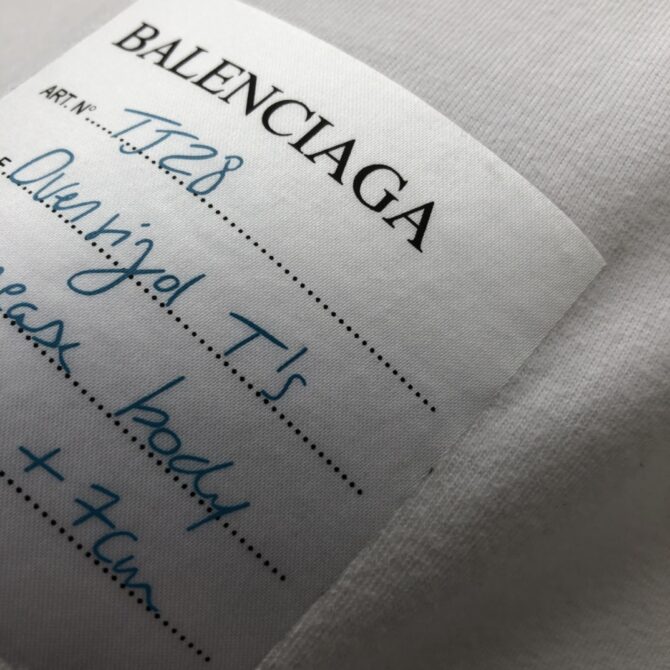 BALENCIAGA
ART. Nº TJ28
E. Oversized T's
ease body
+ 7cm